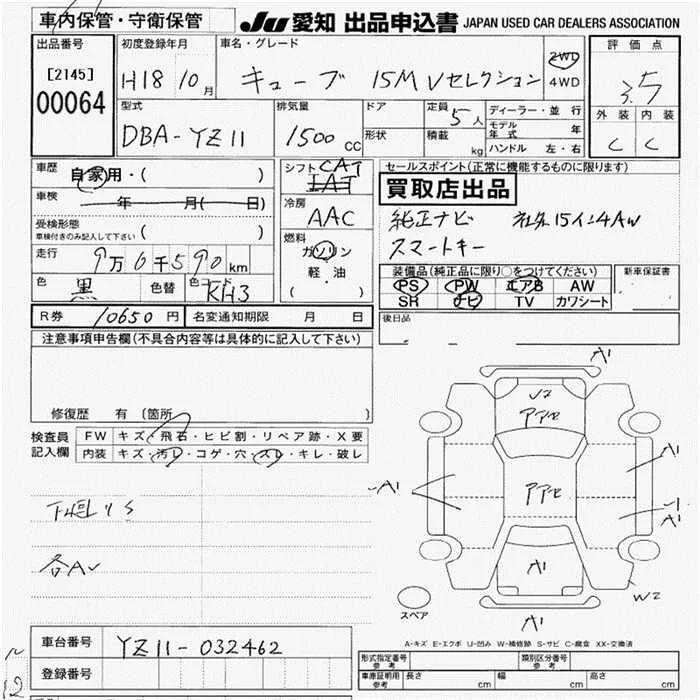 車内保管・守衛保管
JU 愛知 出品申込書 JAPAN USED CAR DEALERS ASSOCIATION
出品番号
[2145]
00064
初度登録年月
H18 10月
車名・グレード
キューブ 15M Vセレクション
2WD
4WD
評価点
3.5
外装 内装
C C
型式
DBA-YZ11
排気量
1500 CC
ドア
形状
定員 5人
積載 kg
ディーラー・並行
モデル年式 年
ハンドル 左・右
車歴
自家用・( )
車検
年 月( 日)
受検形態
車検付きのみ記入して下さい ( )
走行 9万6千590km
色 黒 色替 色コード KH3
シフト CAT
IAT
冷房
AAC
燃料
ガソリン
軽・油
( )
セールスポイント(正常に機能するものに限ります)
買取店出品
純正ナビ 社外15インチAW
スマートキー
装備品(純正品に限り○をつけてください)
PS PW エアB AW
SR ナビ TV カワシート
新車保証書
後日品
R券 10650円 名変通知期限 月 日
注意事項申告欄(不具合内容等は具体的に記入して下さい)
修復歴 有 〔箇所 〕
検査員
記入欄
FW キズ・飛石・ヒビ割・リペア跡・X要
内装 キズ・汚レ・コゲ・穴・スレ・キレ・破レ
A1
U2
アアセ
A1
アアセ
A1
A1
A1
A1
W2
A1
スペア
A-キズ E-エクボ U-凹み W-補修跡 S-サビ C-腐食 XX-交換済
車台番号 YZ11-032462
登録番号
形式指定番号
参考
類別区分番号
参考
車庫証明用
参考
長さ cm 幅 cm 高さ cm